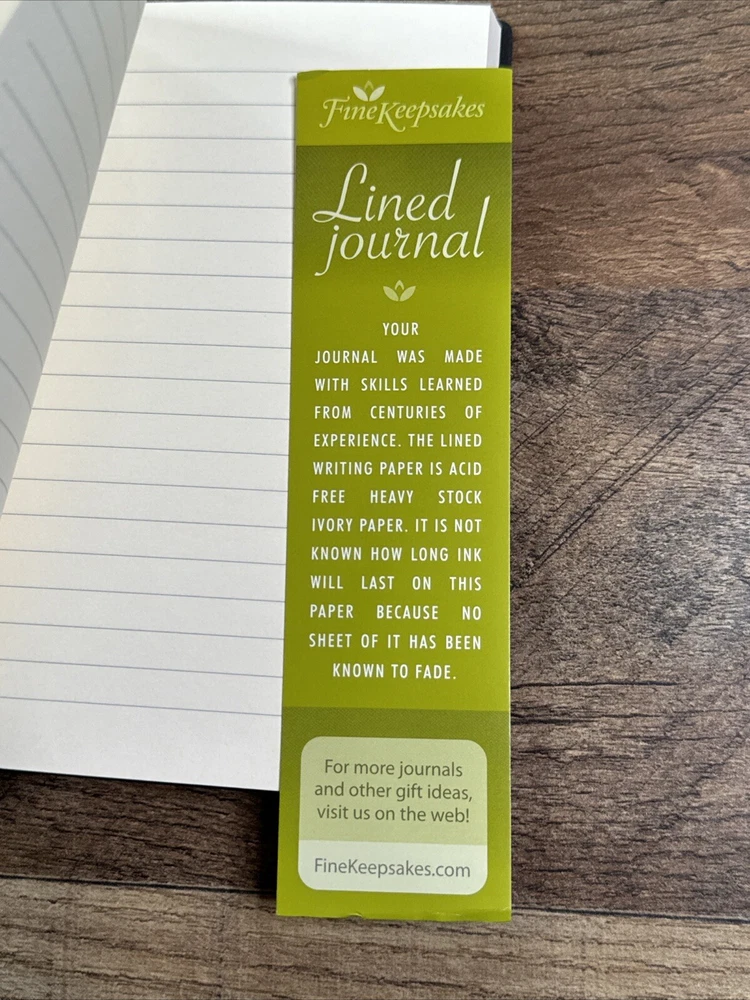 FineKeepsakes
Lined
journal
YOUR
JOURNAL WAS MADE
WITH SKILLS LEARNED
FROM CENTURIES OF
EXPERIENCE. THE LINED
WRITING PAPER IS ACID
FREE HEAVY STOCK
IVORY PAPER. IT IS NOT
KNOWN HOW LONG INK
WILL LAST ON THIS
PAPER BECAUSE NO
SHEET OF IT HAS BEEN
KNOWN TO FADE.
For more journals
and other gift ideas,
visit us on the web!
FineKeepsakes.com